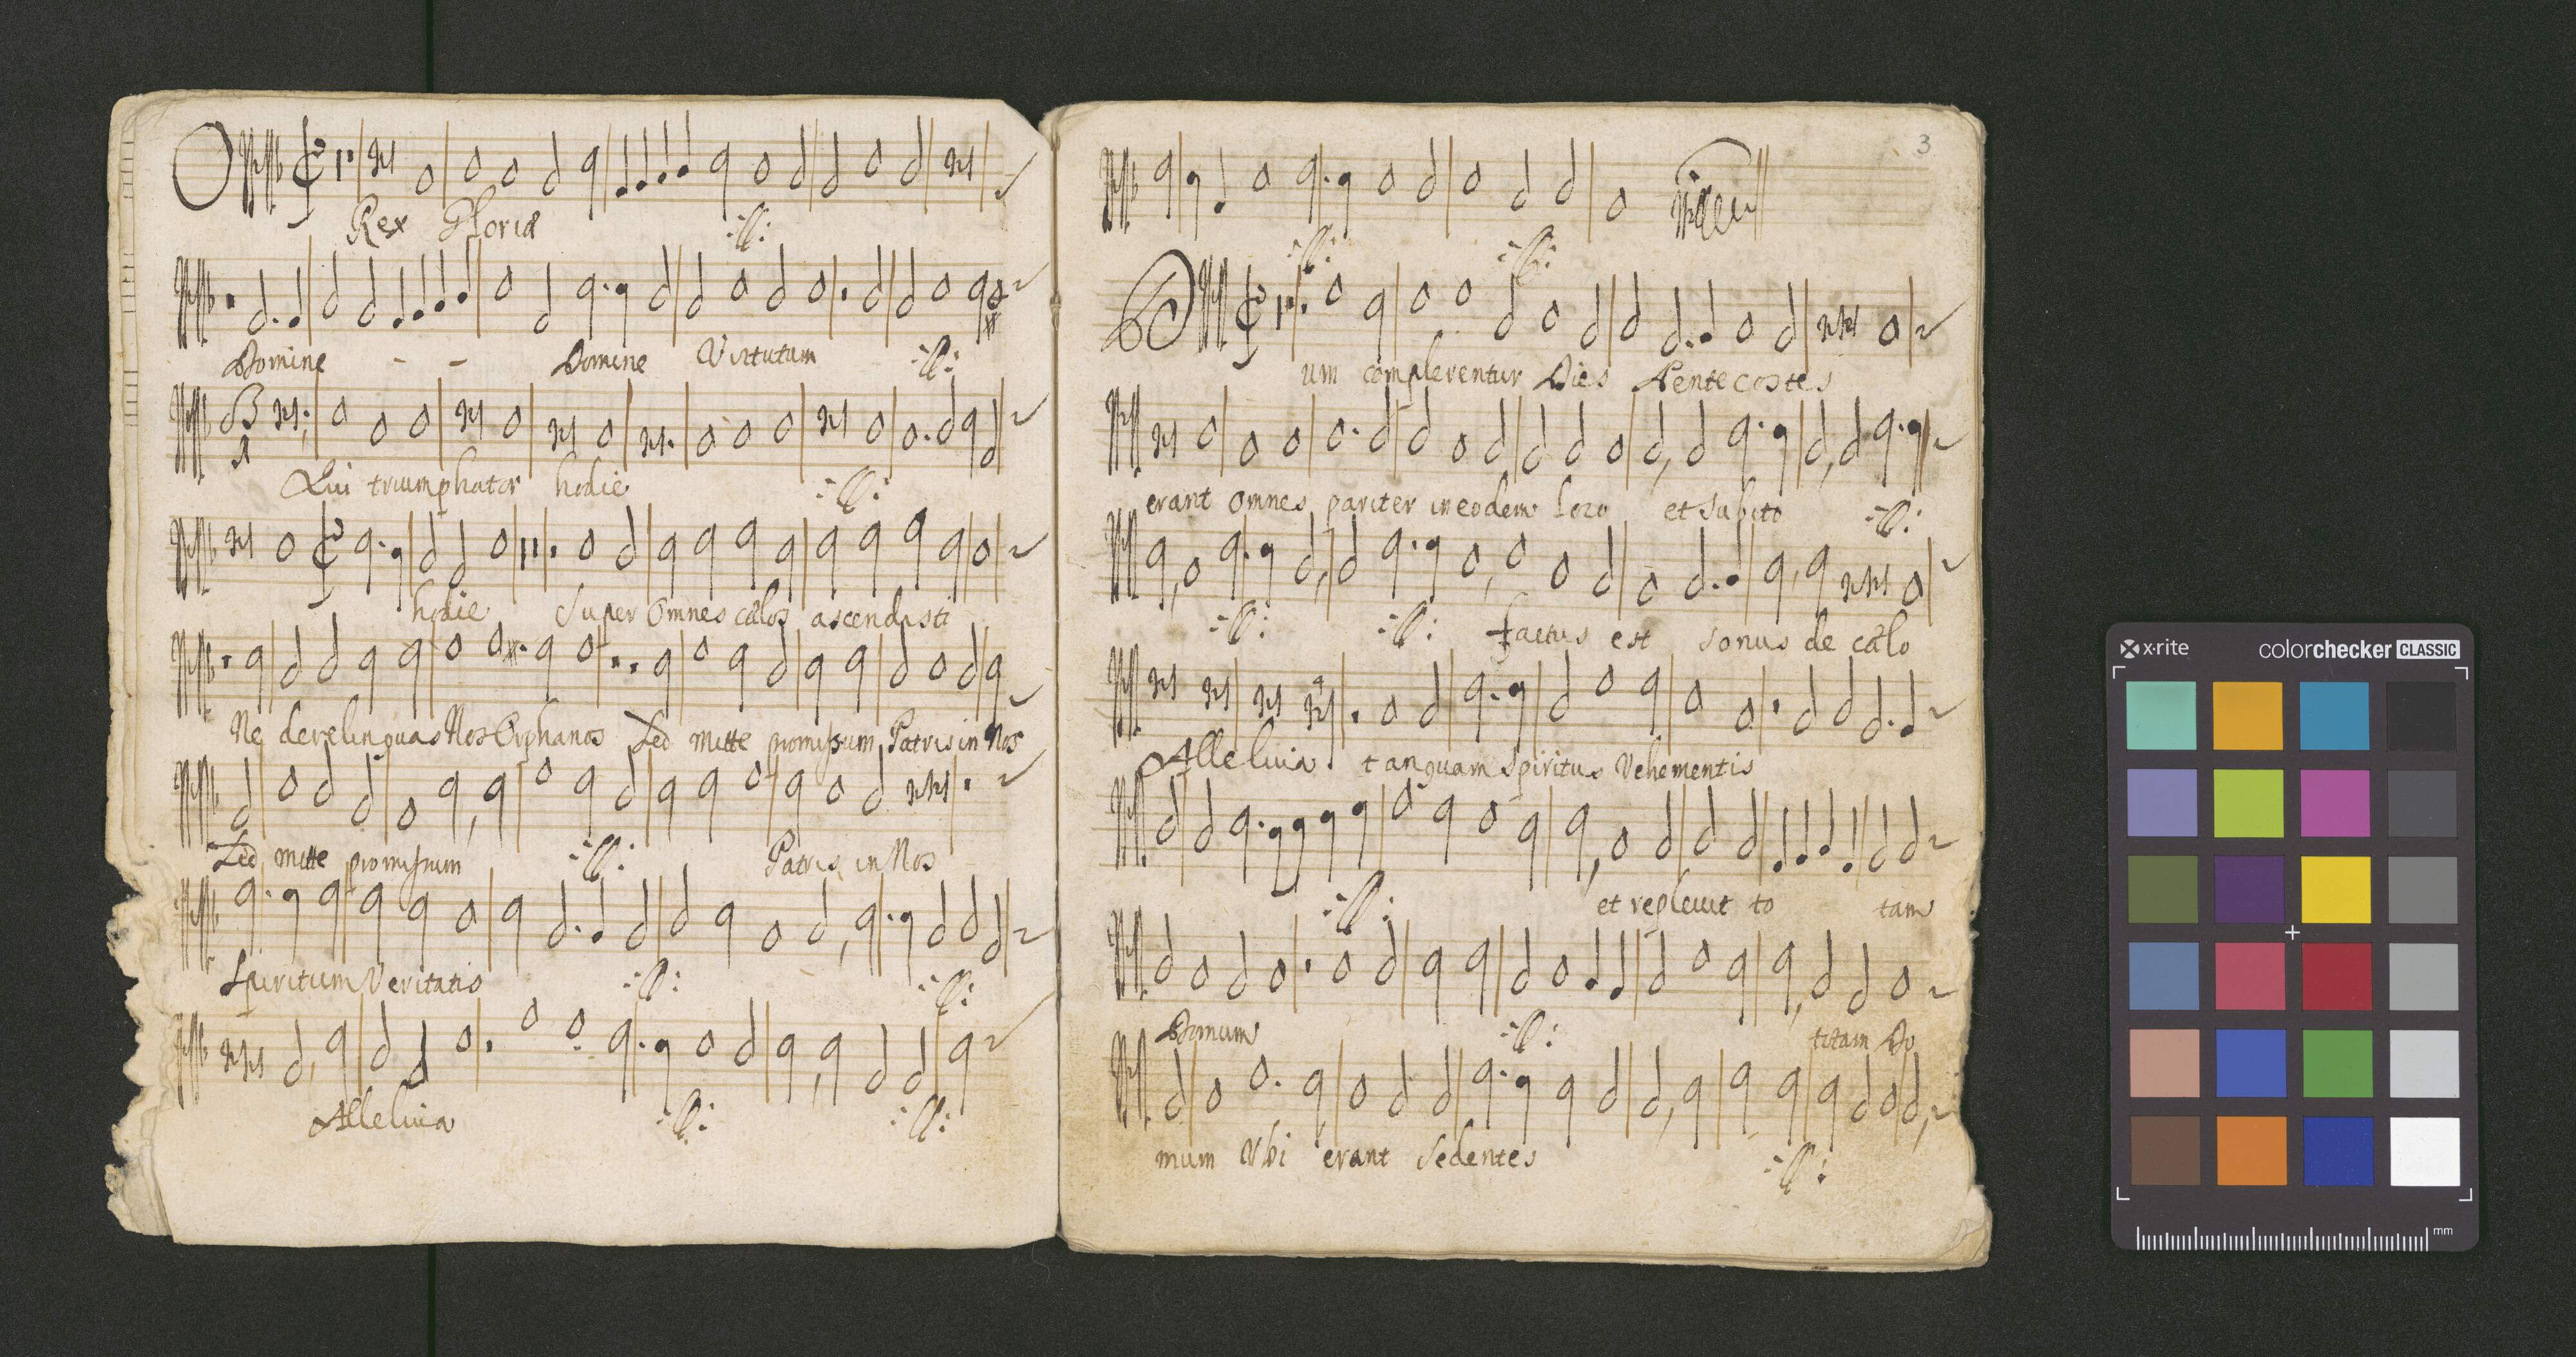 O
Rex Gloriæ
Domine - - Domine Virtutum
Qui triumphator hodie
hodie super Omnes cælos ascendisti
Ne derelinquas Nos Orphanos Sed mitte promissum Patris in Nos
Sed mitte promissum Patris in Nos
Spiritum Veritatis
Alleluia
3
um complerentur Dies Pentecostes
erant omnes pariter in eodem loco et subito
factus est sonus de cælo
Alleluia tanquam spiritus Vehementis
et repleuit to tam
Domum totam Do
mum Vbi erant sedentes
x·rite colorchecker CLASSIC
mm